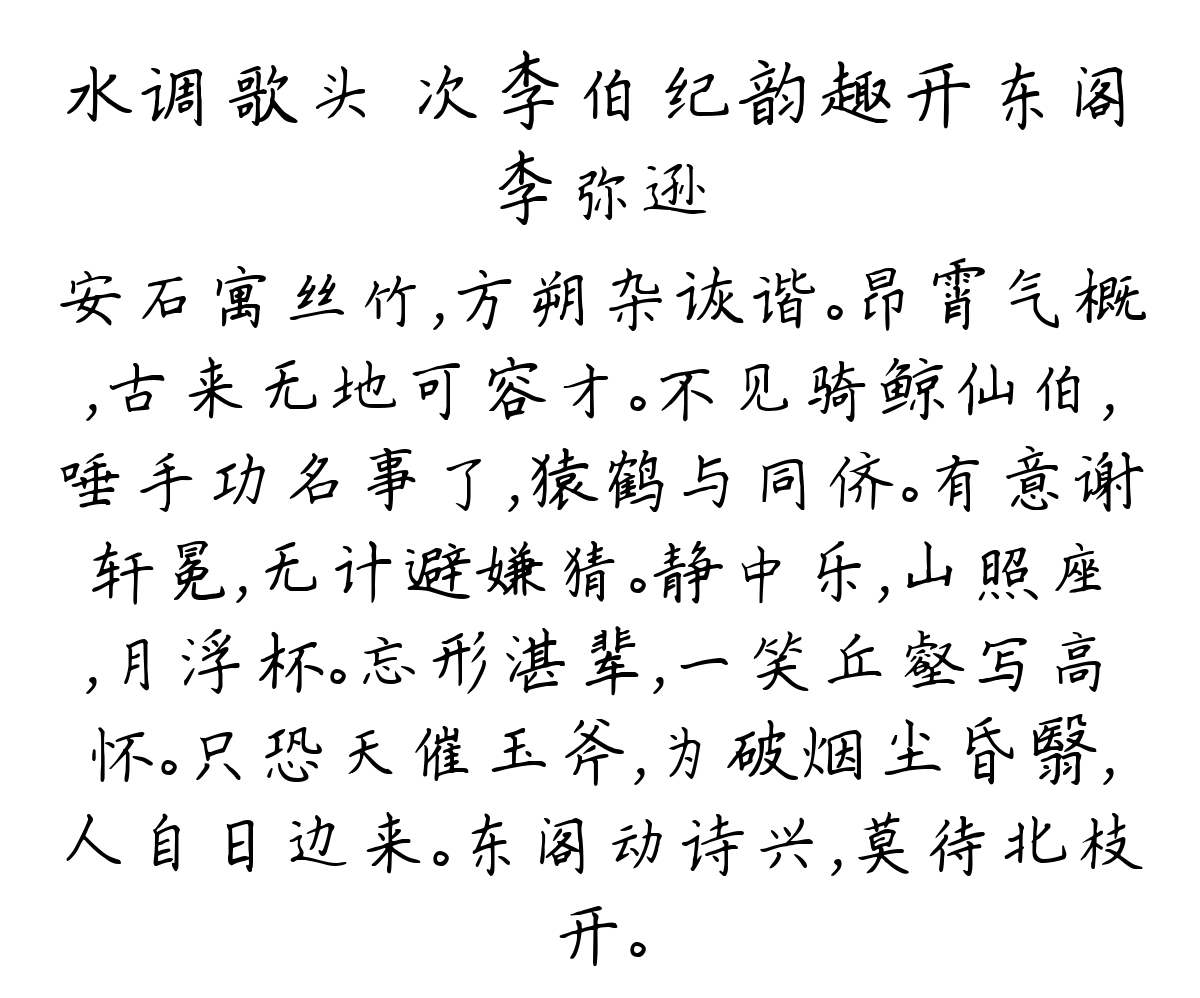 水调歌头 次李伯纪韵趣开东阁
李弥逊
安石寓丝竹,方朔杂诙谐。昂霄气概
,古来无地可容才。不见骑鲸仙伯,
唾手功名事了,猿鹤与同侪。有意谢
轩冕,无计避嫌猜。静中乐,山照座
,月浮杯。忘形湛辈,一笑丘壑写高
怀。只恐天催玉斧,为破烟尘昏翳,
人自日边来。东阁动诗兴,莫待北枝
开。